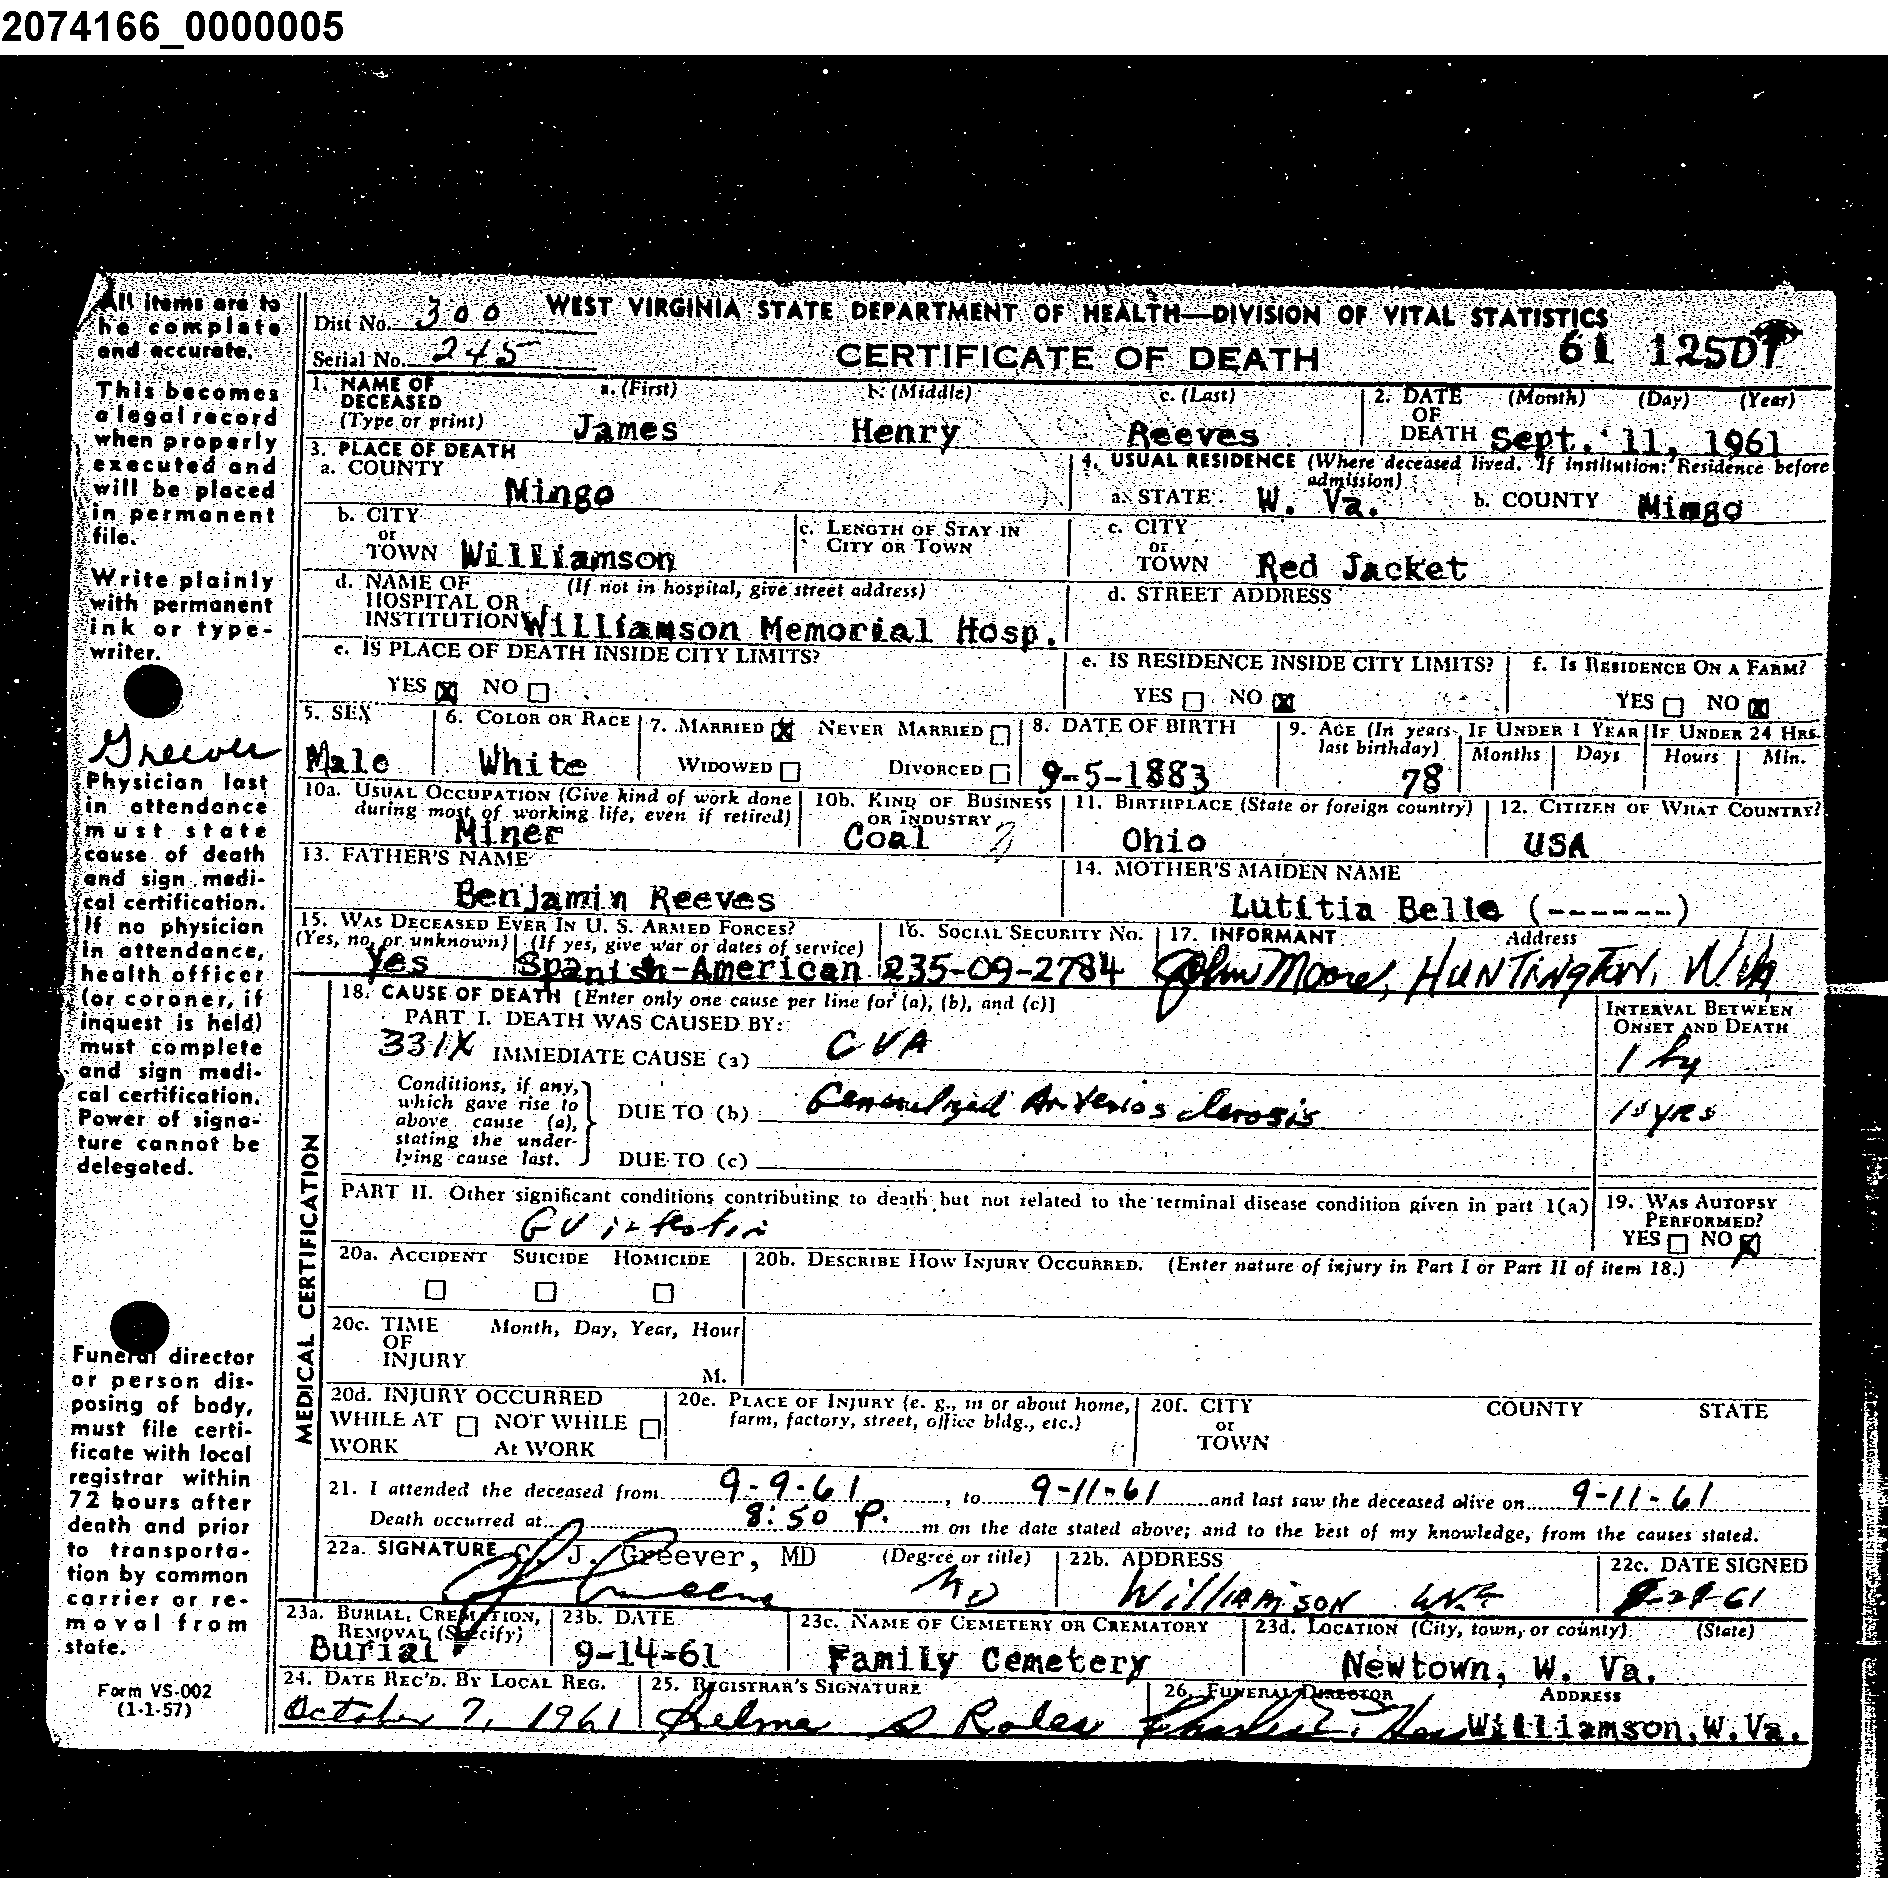 2074166_0000005
All items are to be complete and accurate.
This becomes a legal record when properly executed and will be placed in permanent file.
Write plainly with permanent ink or typewriter.
Greever
Physician last in attendance must state cause of death and sign medical certification. If no physician in attendance, health officer (or coroner, if inquest is held) must complete and sign medical certification. Power of signature cannot be delegated.
Funeral director or person disposing of body, must file certificate with local registrar within 72 hours after death and prior to transportation by common carrier or removal from state.
Form VS-002
(1-1-57)
Dist No. 300
WEST VIRGINIA STATE DEPARTMENT OF HEALTH—DIVISION OF VITAL STATISTICS
Serial No. 245
CERTIFICATE OF DEATH
61
1. NAME OF DECEASED (Type or print)
a. (First) James
b. (Middle) Henry
c. (Last) Reeves
2. DATE OF DEATH (Month) (Day) (Year) Sept. 11, 1961
3. PLACE OF DEATH
a. COUNTY Mingo
4. USUAL RESIDENCE (Where deceased lived. If institution: Residence before admission)
a. STATE W. Va.
b. COUNTY Mingo
b. CITY or TOWN Williamson
c. LENGTH OF STAY IN CITY OR TOWN
c. CITY or TOWN Red Jacket
d. NAME OF HOSPITAL OR INSTITUTION (If not in hospital, give street address) Williamson Memorial Hosp.
d. STREET ADDRESS
e. IS PLACE OF DEATH INSIDE CITY LIMITS?
YES ☒ NO ☐
e. IS RESIDENCE INSIDE CITY LIMITS?
YES ☐ NO ☒
f. IS RESIDENCE ON A FARM?
YES ☐ NO ☒
5. SEX Male
6. COLOR OR RACE White
7. MARRIED ☒ NEVER MARRIED ☐
WIDOWED ☐ DIVORCED ☐
8. DATE OF BIRTH 9-5-1883
9. AGE (In years last birthday) 78
IF UNDER 1 YEAR Months Days
IF UNDER 24 HRS. Hours Min.
10a. USUAL OCCUPATION (Give kind of work done during most of working life, even if retired) Miner
10b. KIND OF BUSINESS OR INDUSTRY Coal
11. BIRTHPLACE (State or foreign country) Ohio
12. CITIZEN OF WHAT COUNTRY? USA
13. FATHER'S NAME Benjamin Reeves
14. MOTHER'S MAIDEN NAME Lutitia Belle (------)
15. WAS DECEASED EVER IN U. S. ARMED FORCES?
(Yes, no, or unknown) Yes
(If yes, give war or dates of service) Spanish-American
16. SOCIAL SECURITY NO. 235-09-2784
17. INFORMANT Address
John Moore, HUNTINGTON, W.Va
MEDICAL CERTIFICATION
18. CAUSE OF DEATH [Enter only one cause per line for (a), (b), and (c)]
INTERVAL BETWEEN ONSET AND DEATH
PART I. DEATH WAS CAUSED BY:
331X IMMEDIATE CAUSE (a) CVA
Conditions, if any, which gave rise to above cause (a), stating the underlying cause last.
DUE TO (b) Generalized Arteriosclerosis
DUE TO (c)
PART II. Other significant conditions contributing to death but not related to the terminal disease condition given in part I(a)
GU
19. WAS AUTOPSY PERFORMED?
YES ☐ NO ☒
20a. ACCIDENT ☐ SUICIDE ☐ HOMICIDE ☐
20b. DESCRIBE HOW INJURY OCCURRED. (Enter nature of injury in Part I or Part II of item 18.)
20c. TIME OF INJURY Month, Day, Year, Hour M.
20d. INJURY OCCURRED
WHILE AT WORK ☐ NOT WHILE At WORK ☐
20e. PLACE OF INJURY (e. g., in or about home, farm, factory, street, office bldg., etc.)
20f. CITY or TOWN COUNTY STATE
21. I attended the deceased from 9-9-61, to 9-11-61 and last saw the deceased alive on 9-11-61
Death occurred at 8:50 P. m on the date stated above; and to the best of my knowledge, from the causes stated.
22a. SIGNATURE J. Greever, MD (Degree or title) MD
22b. ADDRESS Williamson W.Va
22c. DATE SIGNED
23a. BURIAL, CREMATION, REMOVAL (Specify) Burial
23b. DATE 9-14-61
23c. NAME OF CEMETERY OR CREMATORY Family Cemetery
23d. LOCATION (City, town, or county) (State) Newtown, W. Va.
24. DATE REC'D. BY LOCAL REG. October 7, 1961
25. REGISTRAR'S SIGNATURE Selma S Roles
26. FUNERAL DIRECTOR ADDRESS
Williamson, W.Va.